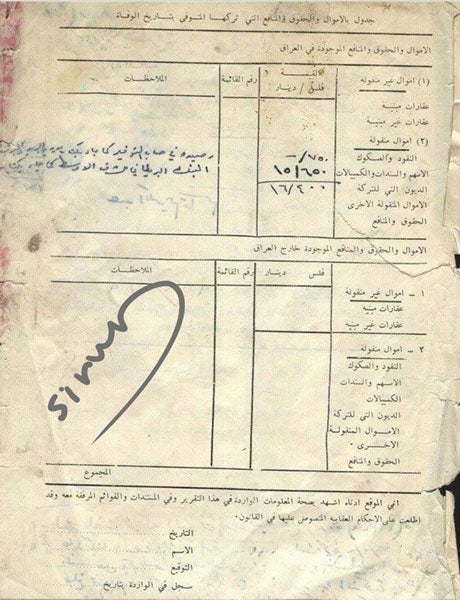 جدول بالاموال والحقوق والمنافع التي تركها المتوفى بتاريخ الوفاة
الاموال والحقوق والمنافع الموجودة في العراق
(١) اموال غير منقوله
القيمة
فلس / دينار
رقم القائمة
الملاحظات
عقارات مبنية
عقارات غير مبنيه
(٢) اموال منقولة
النقود والصكوك
-/٧٥٠
رصيده في حساب التوفير كما جاء بكتاب
الاسهم والسندات والكمبيالات
١٥/٦٥٠
البنك البريطاني للشرق الاوسط كما جاء بكتاب
الديون التي للتركة
١٦/٤٠٠
الاموال المنقولة الاخرى
الحقوق والمنافع
الاموال والحقوق والمنافع الموجودة خارج العراق
فلس دينار
رقم القائمة
الملاحظات
١ - اموال غير منقولة
عقارات مبنيه
عقارات غير مبنيه
٢ - اموال منقولة
النقود والصكوك
الاسهم والسندات
الكمبيالات
الديون التي للتركة
الاموال المنقولة
الاخرى .
الحقوق والمنافع
المجموع
اني الموقع ادناه اشهد بصحة المعلومات الواردة في هذا التقرير وفي المستندات والقوائم المرفقه معه وقد
اطلعت على الاحكام العقابيه المنصوص عليها في القانون .
التاريخ
الاسم
التوقيع
سجل في الواردة بتاريخ